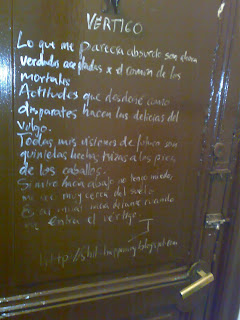 VERTIGO
Lo que me parecía absurdo son ahora
verdades aceptadas x el común de los
mortales
Actitudes que desdeñé como
disparates hacen las delicias del
vulgo.
Todas mis visiones de futuro son
quinielas hechas trizas a los pies
de los caballos.
Si miro hacia abajo no tengo miedo,
me veo muy cerca del suelo
Es al mirar hacia delante cuando
me entra el vértigo
J
http://still-happening.blogspot.com